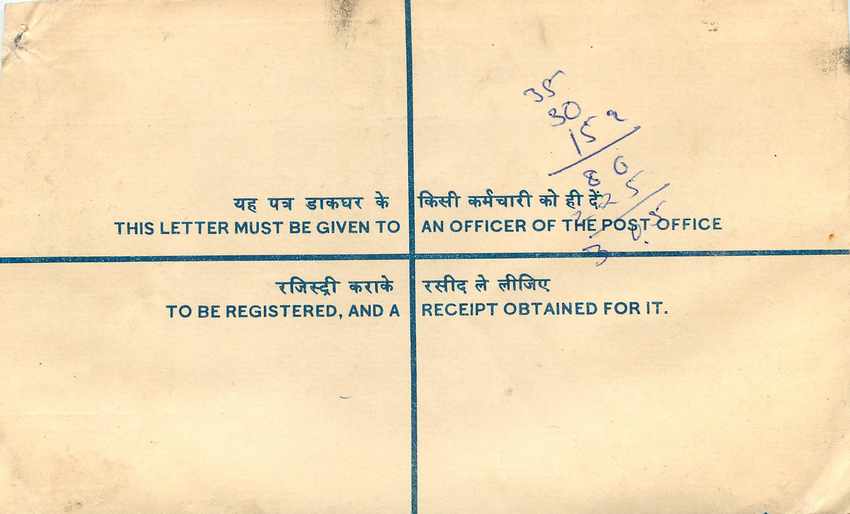 यह पत्र डाकघर के किसी कर्मचारी को ही दें
THIS LETTER MUST BE GIVEN TO AN OFFICER OF THE POST OFFICE
रजिस्ट्री कराके रसीद ले लीजिए
TO BE REGISTERED, AND A RECEIPT OBTAINED FOR IT.
35
30